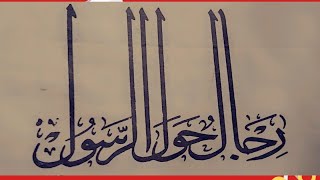 رِجَالٌ حَوْلَ الرَّسُوْلِ